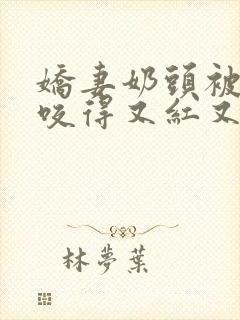 嬌妻奶頭被
咬得又紅又
林夢葉